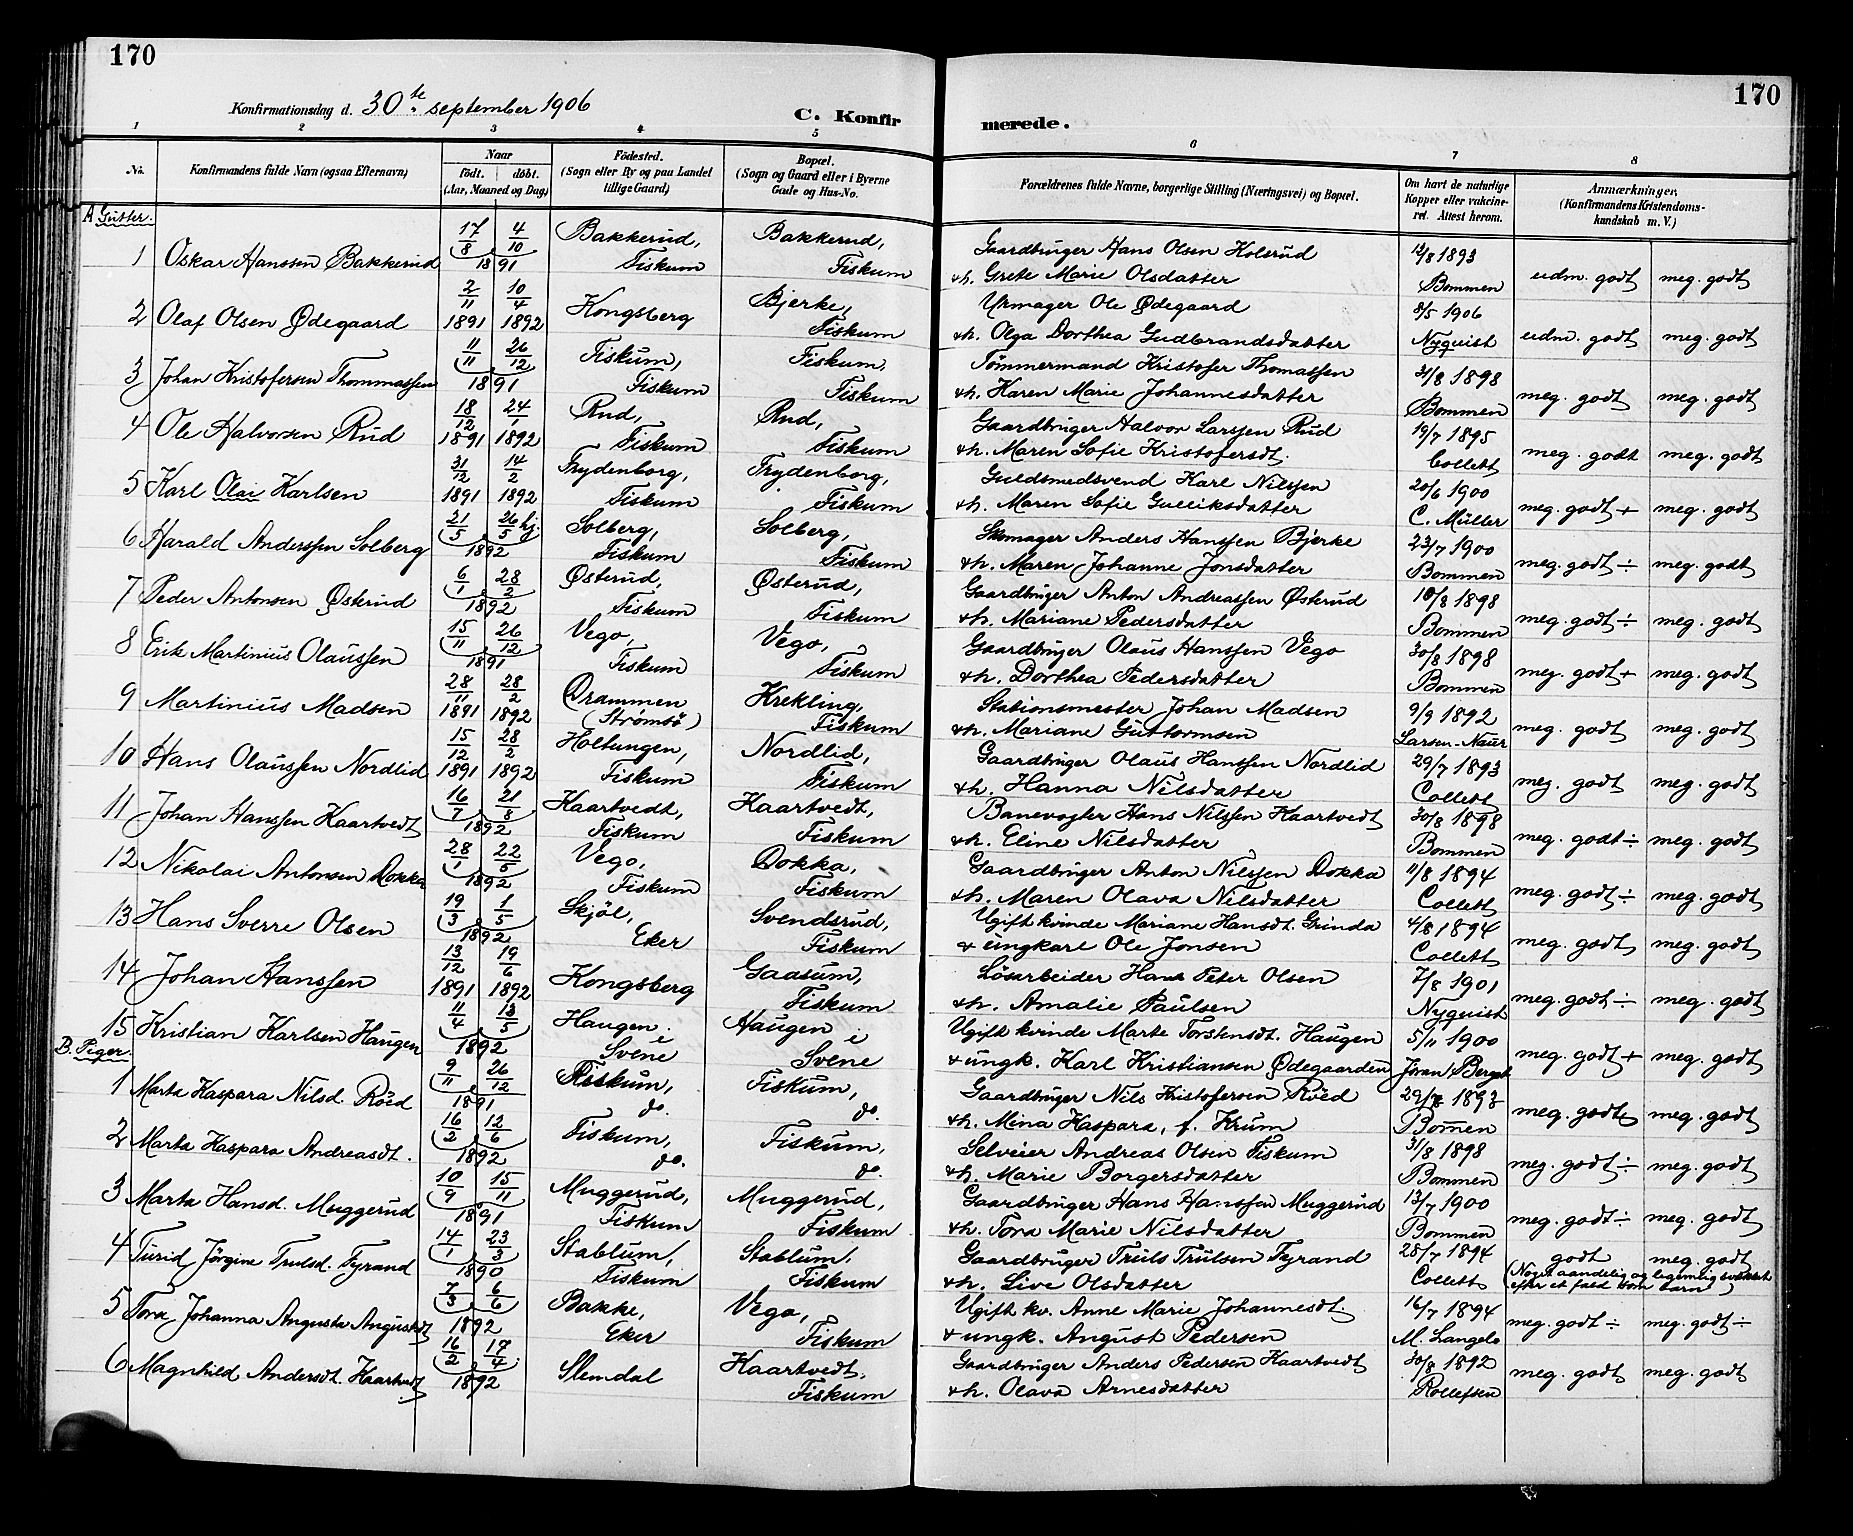 170
170
Konfirmationsdag d. 30te september 1906
C. Konfir
merede.
1 2 3 4 5 6 7 8
No.
Konfirmandens fulde Navn (ogsaa Efternavn)
Naar
født. døbt.
(Aar, Maaned og Dag)
Fødested.
(Sogn eller By og paa Landet
tillige Gaard)
Bopæl.
(Sogn og Gaard eller i Byerne
Gade og Hus-No.
Forældrenes fulde Navne, borgerlige Stilling (Næringsvei) og Bopæl.
Om havt de naturlige
Kopper eller vakcine-
ret. Attest herom.
Anmærkninger.
(Konfirmandens Kristendoms-
kundskab m. V.)
A Gutter.
1 Oskar Hanssen Bakkerud 17/8 4/10 1891 Bakkerud, Fiskum Bakkerud, Fiskum Gaardbruger Hans Olsen Holsrud 12/8 1893
&h. Grete Marie Olsdatter Bommen udm. godt meg. godt
2 Olaf Olsen Ødegaard 2/11 1891 10/4 1892 Kongsberg Bjerke, Fiskum Urmager Ole Ødegaard 8/5 1906
&h. Olga Dorthea Gudbrandsdatter Nyquist udm. godt meg. godt
3 Johan Kristofersen Thommassen 11/11 26/12 1891 Fiskum, Fiskum Fiskum, Fiskum Tømmermand Kristofer Thomassen 31/8 1898
&h. Karen Marie Johannesdatter Bommen meg. godt meg. godt
4 Ole Halvorsen Rud 18/12 1891 24/1 1892 Rud, Fiskum Rud, Fiskum Gaardbruger Halvor Larssen Rud 19/7 1895
&h. Maren Sofie Kristofersdt. Collett meg. godt meg. godt
5 Karl Olai Karlsen 31/12 1891 14/2 1892 Frydenborg, Fiskum Frydenborg, Fiskum Guldsmedsvend Karl Nilssen 20/6 1900
&h. Maren Sofie Gulliksdatter C. Müller meg. godt + meg. godt
6 Harald Anderssen Solberg 21/5 26/5 hj. 1892 Solberg, Fiskum Solberg, Fiskum Skomager Anders Hanssen Bjerke 23/7 1900
&h. Maren Johanne Jonsdatter Bommen meg. godt ÷ meg. godt
7 Peder Antonsen Østerud 6/1 28/2 1892 Østerud, Fiskum Østerud, Fiskum Gaardbruger Anton Andreassen Østerud 10/8 1898
&h. Mariane Pedersdatter Bommen meg. godt ÷ meg. godt
8 Erik Martinius Olaussen 15/11 26/12 1891 Vego, Fiskum Vego, Fiskum Gaardbruger Olaus Hanssen Vego 30/8 1898
&h. Dorthea Pedersdatter Bommen meg. godt + meg. godt
9 Martinius Madsen 28/11 1891 28/2 1892 Drammen (Strømsø) Krekling, Fiskum Stationsmester Johan Madsen 9/9 1892
&h. Mariane Guttormsen Larsen-Naur meg. godt meg. godt
10 Hans Olaussen Nordlid 15/12 1891 28/2 1892 Holtungen, Fiskum Nordlid, Fiskum Gaardbruger Olaus Hanssen Nordlid 29/7 1893
&h. Hanna Nilsdatter Collett meg. godt meg. godt
11 Johan Hanssen Kaartvedt 16/7 21/8 1892 Kaartvedt, Fiskum Kaartvedt, Fiskum Banevogter Hans Nilssen Kaartvedt 30/8 1898
&h. Eline Nilsdatter Bommen meg. godt ÷ meg. godt
12 Nikolai Antonsen Dokka 28/1 22/5 1892 Vego, Fiskum Dokka, Fiskum Gaardbruger Anton Nilssen Dokka 11/8 1894
&h. Maren Olava Nilsdatter Collett meg. godt ÷ meg. godt
13 Hans Sverre Olsen 19/3 1/5 1892 Skjøl, Eker Svendsrud, Fiskum Ugift kvinde Mariane Hansdt. Grinda 4/8 1894
& ungkarl Ole Jonsen Collett meg. godt meg. godt
14 Johan Hanssen 13/12 1891 19/6 1892 Kongsberg Gaasum, Fiskum Løsarbeider Hans Peter Olsen 7/8 1901
&h. Amalie Paulsen Nyquist meg. godt ÷ meg. godt
15 Kristian Karlsen Haugen 11/4 13/5 1892 Haugen i Svene Haugen i Svene Ugift kvinde Marte Torstensdt. Haugen 5/11 1900
& ungk. Karl Kristiansen Ødegaarden Jøran Berget meg. godt + meg. godt
B. Piger.
1 Marta Kaspara Nilsd. Røed 9/11 26/12 1891 Fiskum, do. Fiskum, do. Gaardbruger Nils Kristofersen Røed 29/7 1893
&h. Mina Kaspara, f. Krum Bommen meg. godt meg. godt
2 Marta Kaspara Andreasdt. 16/2 12/6 1892 Fiskum, do. Fiskum, do. Selveier Andreas Olsen Fiskum 31/8 1898
&h. Marie Borgersdatter Bommen meg. godt ÷ meg. godt
3 Marta Hansd. Muggerud 10/9 15/11 1891 Muggerud, Fiskum Muggerud, Fiskum Gaardbruger Hans Hanssen Muggerud 13/7 1900
&h. Tora Marie Nilsdatter Bommen meg. godt ÷ meg. godt
4 Turid Jørgine Trulsd. Fyrand 14/1 23/3 1890 Stablum, Fiskum Stablum, Fiskum Gaardbruger Truls Trulsen Fyrand 28/7 1894 godt meg. godt
&h. Live Olsdatter Collett (Noget aandelig og legemlig svækket
efter et fald som barn)
5 Tora Johanna Augusta Augustdt 7/3 6/6 1892 Bakke, Eker Vego, Fiskum Ugift kv. Anne Marie Johannesdt. 16/7 1894
& ungk. August Pedersen M. Langelo meg. godt ÷ meg. godt ÷
6 Magnhild Andersdt. Kaartvedt 16/2 17/4 1892 Slemdal Kaartvedt, Fiskum Gaardbruger Anders Pedersen Kaartvedt 30/8 1892
&h. Olava Arnesdatter Rollefsen meg. godt meg. godt